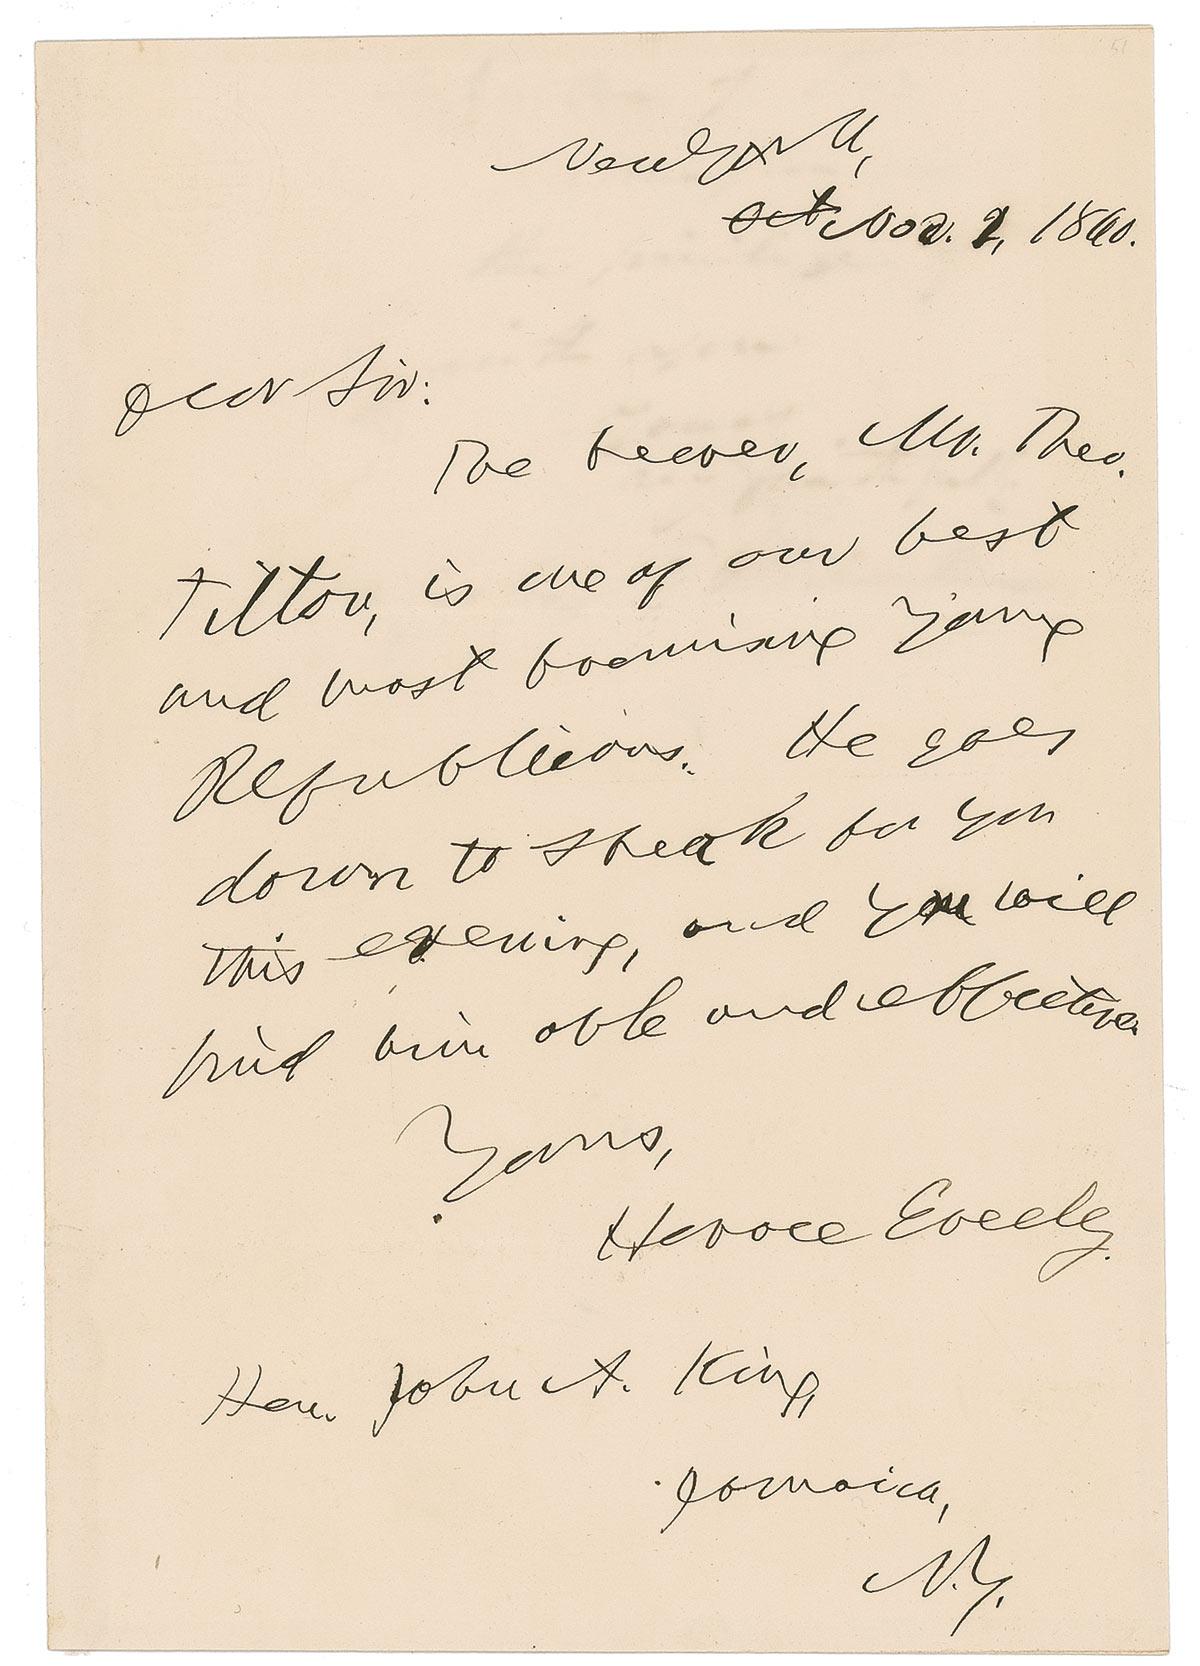 New York,
Oct Nov. 1, 1860.
Dear Sir:
The bearer, Mr. Theo.
Tilton, is one of our best
and most promising young
Republicans. He goes
down to speak for you
this evening, and you will
find him able and effective.
Yours,
Horace Greeley.
Hon. John A. King,
Jamaica,
N.Y.